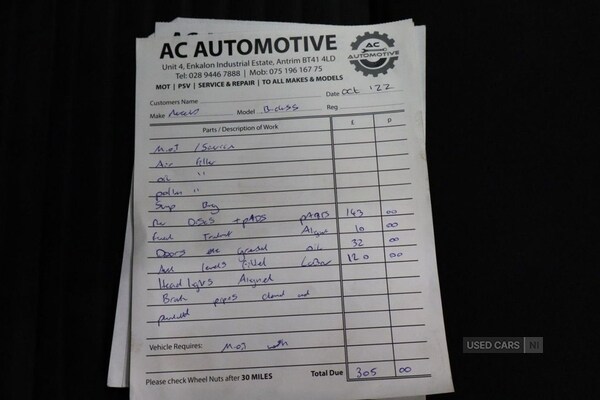 AC AUTOMOTIVE
Unit 4, Enkalon Industrial Estate, Antrim BT41 4LD
Tel: 028 9446 7888 | Mob: 075 196 167 75
MOT | PSV | SERVICE & REPAIR | TO ALL MAKES & MODELS
AC
AUTOMOTIVE
Customers Name Date Oct '22
Make Model B-class Reg
Parts / Description of Work £ P
M.O.T / Service
Air filter
oil "
pollen "
Sump Bung
Discs + pads PARTS 143 00
fuel 10 00
Doors etc Greased oil 32 00
All levels filled Labour 120 00
Headlights Aligned
Brake pipes cleaned and
Vehicle Requires: M.O.T
Please check Wheel Nuts after 30 MILES Total Due 305 00
USED CARS NI